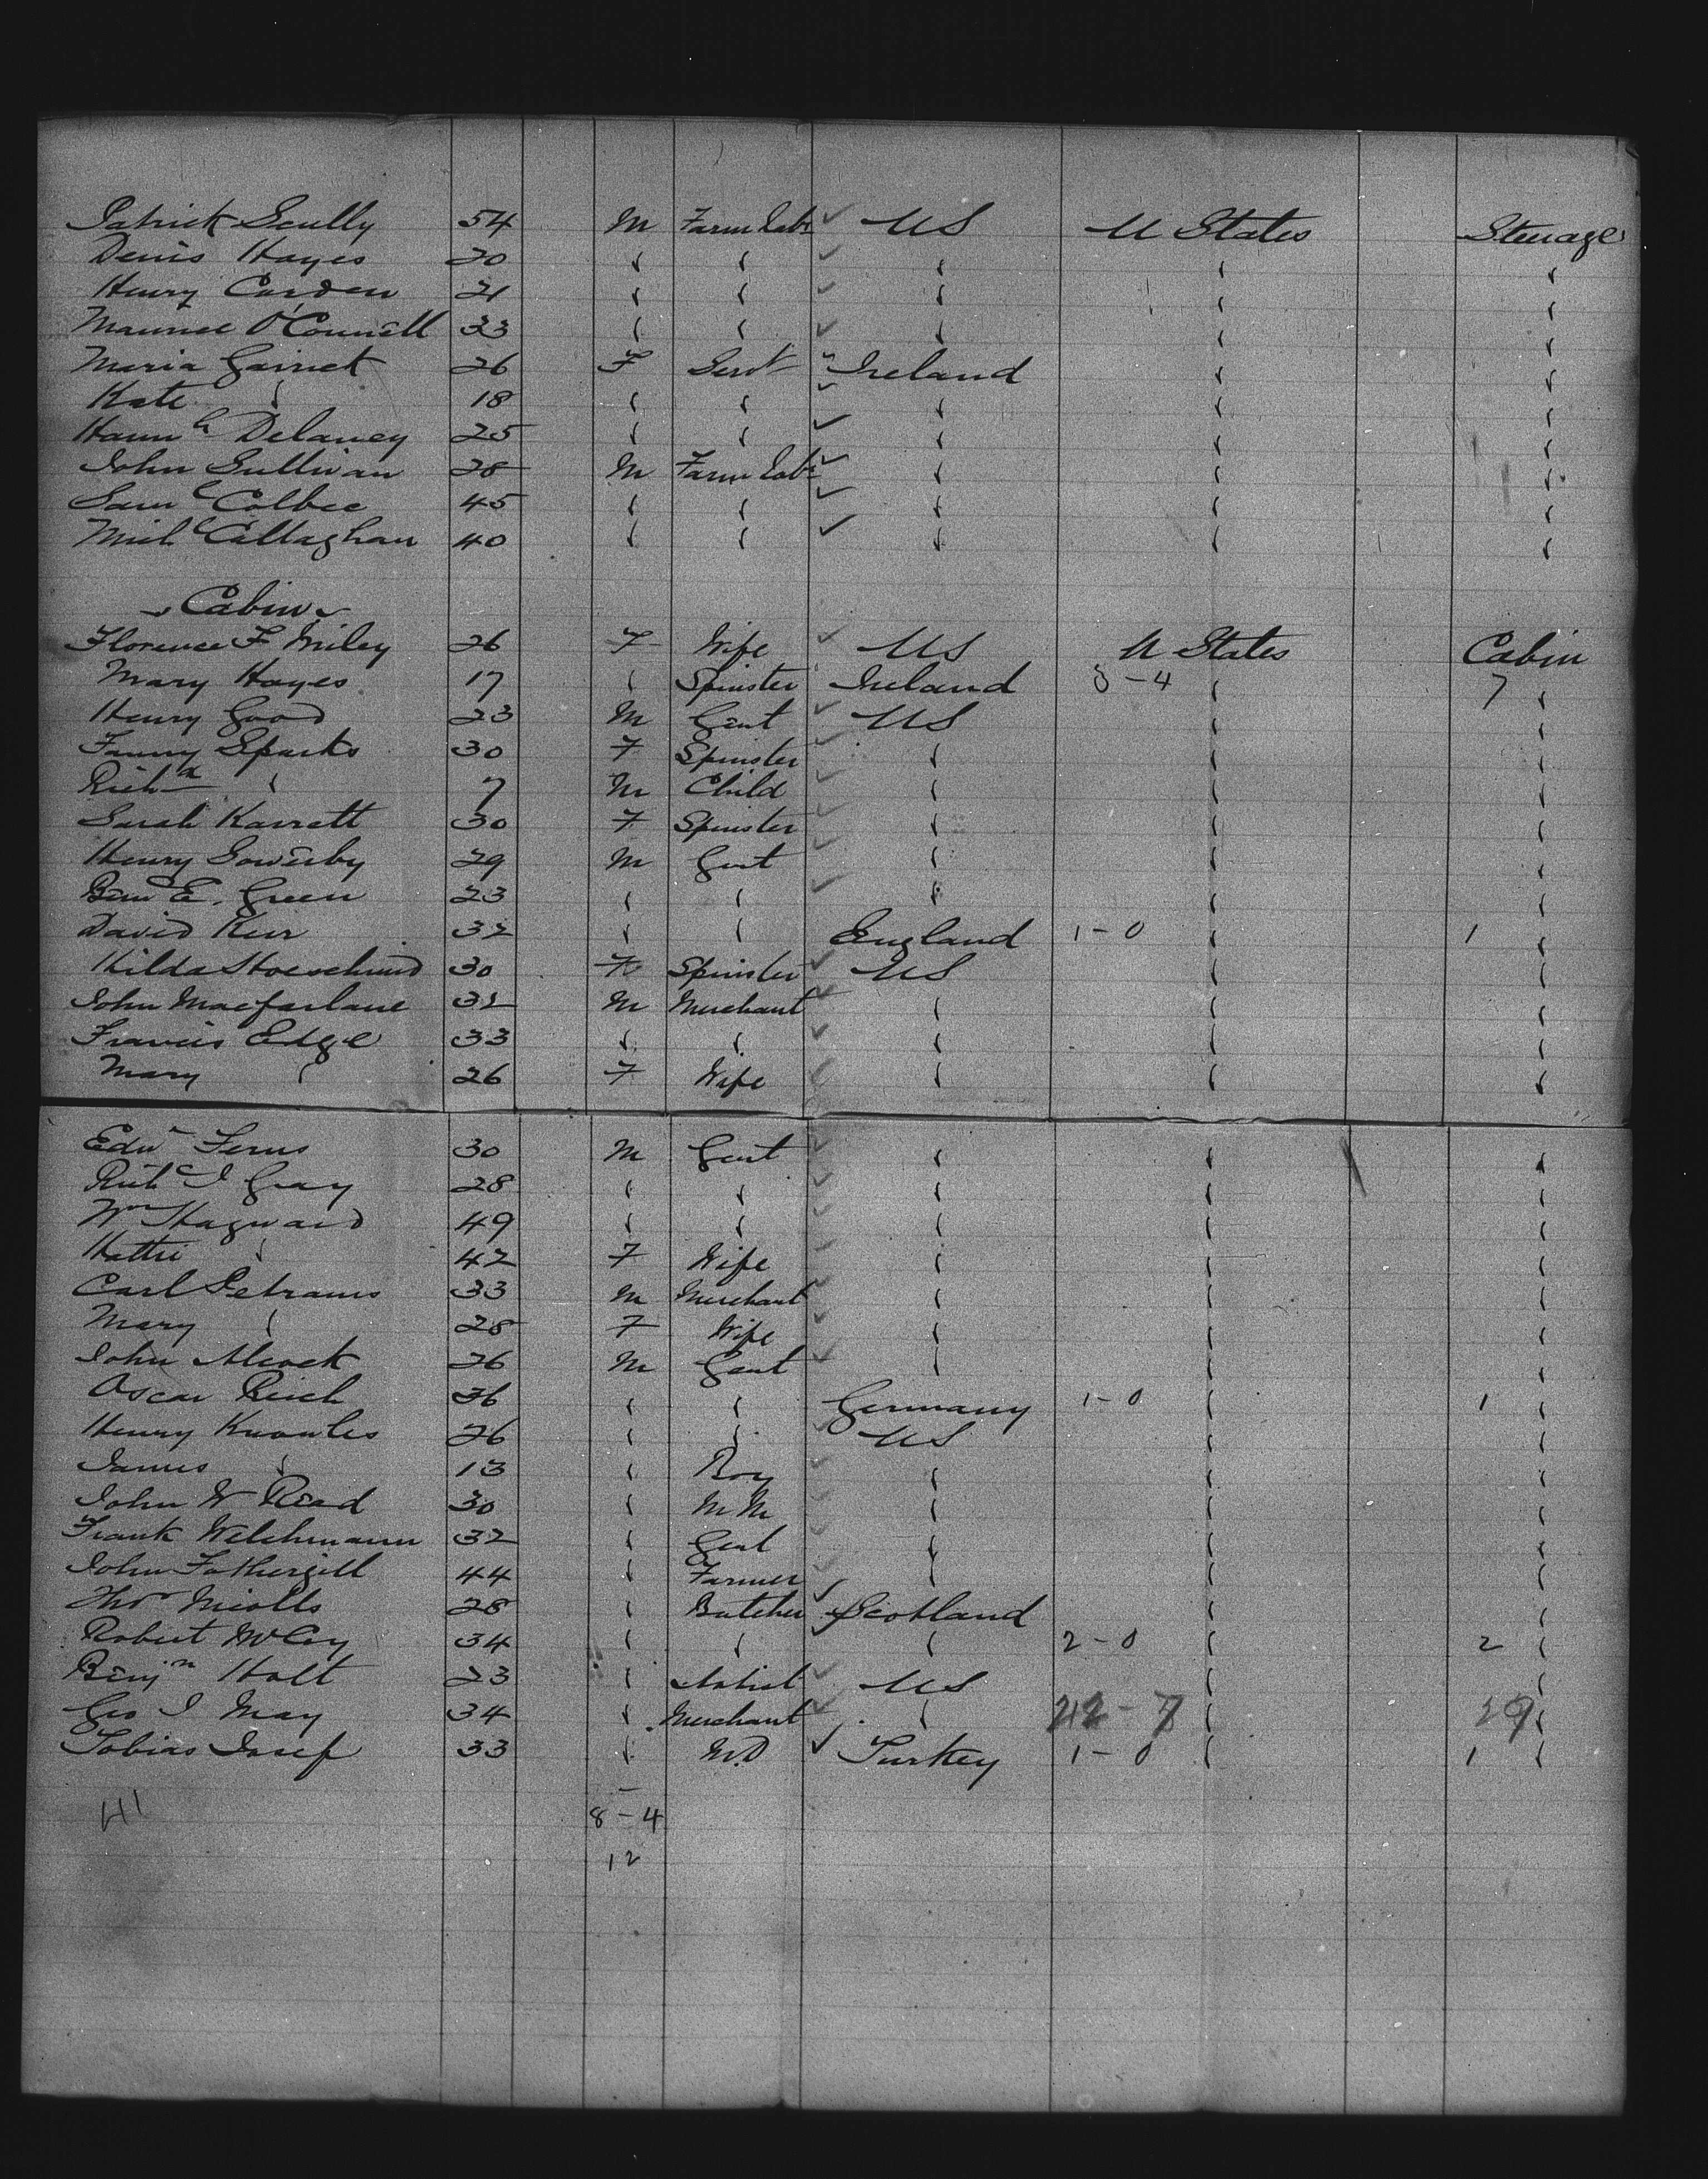 Patrick Scully 54 M Farm Labr ✓ US U States Steerage
Denis Hayes 20 " " ✓ " " "
Henry Carden 21 " " ✓ " " "
Maurice O'Connell 33 " " ✓ " " "
Maria Garnet 26 F Servt ✓ Ireland " "
Kate " 18 " " ✓ " " "
Hannh Delaney 25 " " ✓ " " "
John Sullivan 28 M Farm Labr ✓ " " "
Saml Colbee 45 " " ✓ " " "
Michl Callaghan 40 " " ✓ " " "
Cabin
Florence F Wiley 26 F Wife ✓ US U States Cabin
Mary Hayes 17 " Spinster ✓ Ireland 3-4 " 7 "
Henry Good 23 M Gent ✓ US " "
Fanny Sparks 30 F Spinster ✓ " " "
Richd " 7 M Child ✓ " " "
Sarah Karratt 30 F Spinster ✓ " " "
Henry Sowerby 29 M Gent ✓ " " "
E. Green 23 " " ✓ " " "
David Keir 32 " " England 1-0 " 1 "
Hilda 30 F Spinster ✓ US " "
John Macfarlane 32 M Merchant ✓ " " "
Francis Edge 33 " " ✓ " " "
Mary " 26 F Wife ✓ " " "
Edw Ferns 30 M Gent ✓ " " "
Richd J Gray 28 " " ✓ " " "
Wm Hayward 49 " " ✓ " " "
Hattie " 42 F Wife ✓ " " "
Carl 33 M Merchant ✓ " " "
Mary " 28 F Wife ✓ " " "
John Alcock 26 M Gent ✓ " " "
Oscar Reich 36 " " Germany 1-0 " 1 "
Henry Knowles 26 " " ✓ US " "
James " 13 " Boy ✓ " " "
John W Read 30 " M M ✓ " " "
Frank Welchmann 32 " Gent ✓ " " "
John Fothergill 44 " Farmer ✓ " " "
Thos Nicolls 28 " Butcher ✓ Scotland " "
Robert McCoy 34 " " " 2-0 " 2 "
Benjn Holt 23 " Artist ✓ US " "
Geo J May 34 " Merchant ✓ " 22-7 " 29 "
Tobias Josef 33 " M.D ✓ Turkey 1-0 " 1 "
41 8-4
12